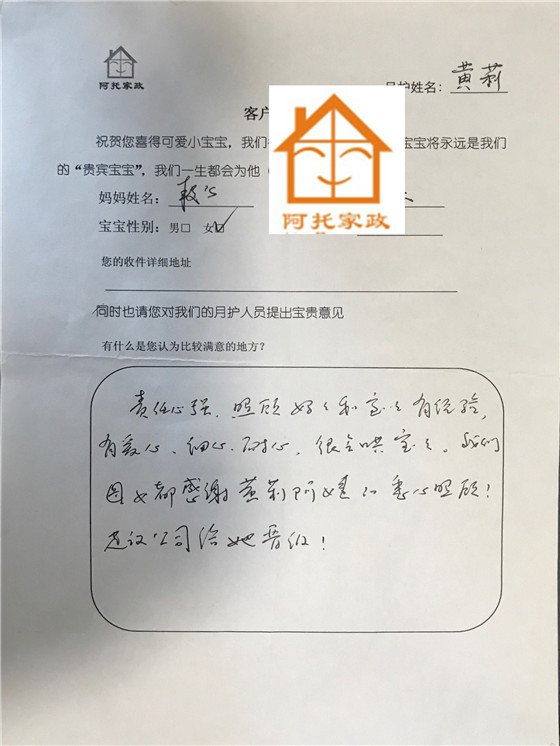 阿托家政
月护姓名：黄莉
客户
祝贺您喜得可爱小宝宝，我们 宝宝将永远是我们
的“贵宾宝宝”，我们一生都会为他（
阿托家政
妈妈姓名：
宝宝性别：男□ 女□
您的收件详细地址
同时也请您对我们的月护人员提出宝贵意见
有什么是您认为比较满意的地方？
责任心强，照顾妈妈和宝宝有经验，
有爱心、细心、耐心，很会哄宝宝。我们
母女都感谢黄莉阿姨的悉心照顾！
建议公司给她晋级！